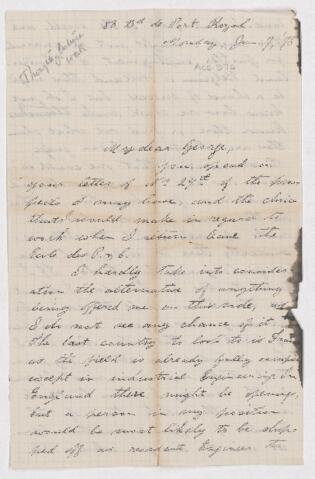 83 Bd de Port Royal
Monday Jan 9, 75
Thoughts future
work
My dear George,
You spend in
your letter of the 29th of the pros-
pects I may have, and the choice
that I would make in regard to
work when I return leave the
Ecole des P. & C.
I hardly take into consider
ation the alternative of anything
being offered me on this side, as
I do not see any chance of it.
The last country to look to is
as the field is already fully
except in industrial Engineering. In
England there might be openings,
but a person in my position
would be most likely to be ship
ped off as resident Engineer to